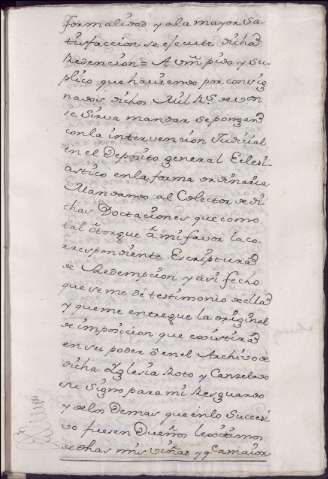 formalidad y a la mayor sa
tisfaccion se efecute dicha
Redencion= A Vm pido y su
plico, que haviendo por consig
nados dichos Mil R.s de von
se sirva mandar se pongan
con la intervencion Judicial
en el Deposito general Ecleci
astico en la forma ordinaria
Mandando al Colector de di
chas Dotaciones que como
tal otorgue â mi favor la co
rrespondiente Escriptura
de Redempcion y asi fecho
que se me de testimonio de ella
y que me entregue la original
de imposicion que existira
en su poder ô en el Archivo de
dicha Yglesia Roto y Canzelado
su Signo para mi Resguardo
y de los Demas que en lo Succesi
vo fuesen Dueños
de dhas mis viñas y